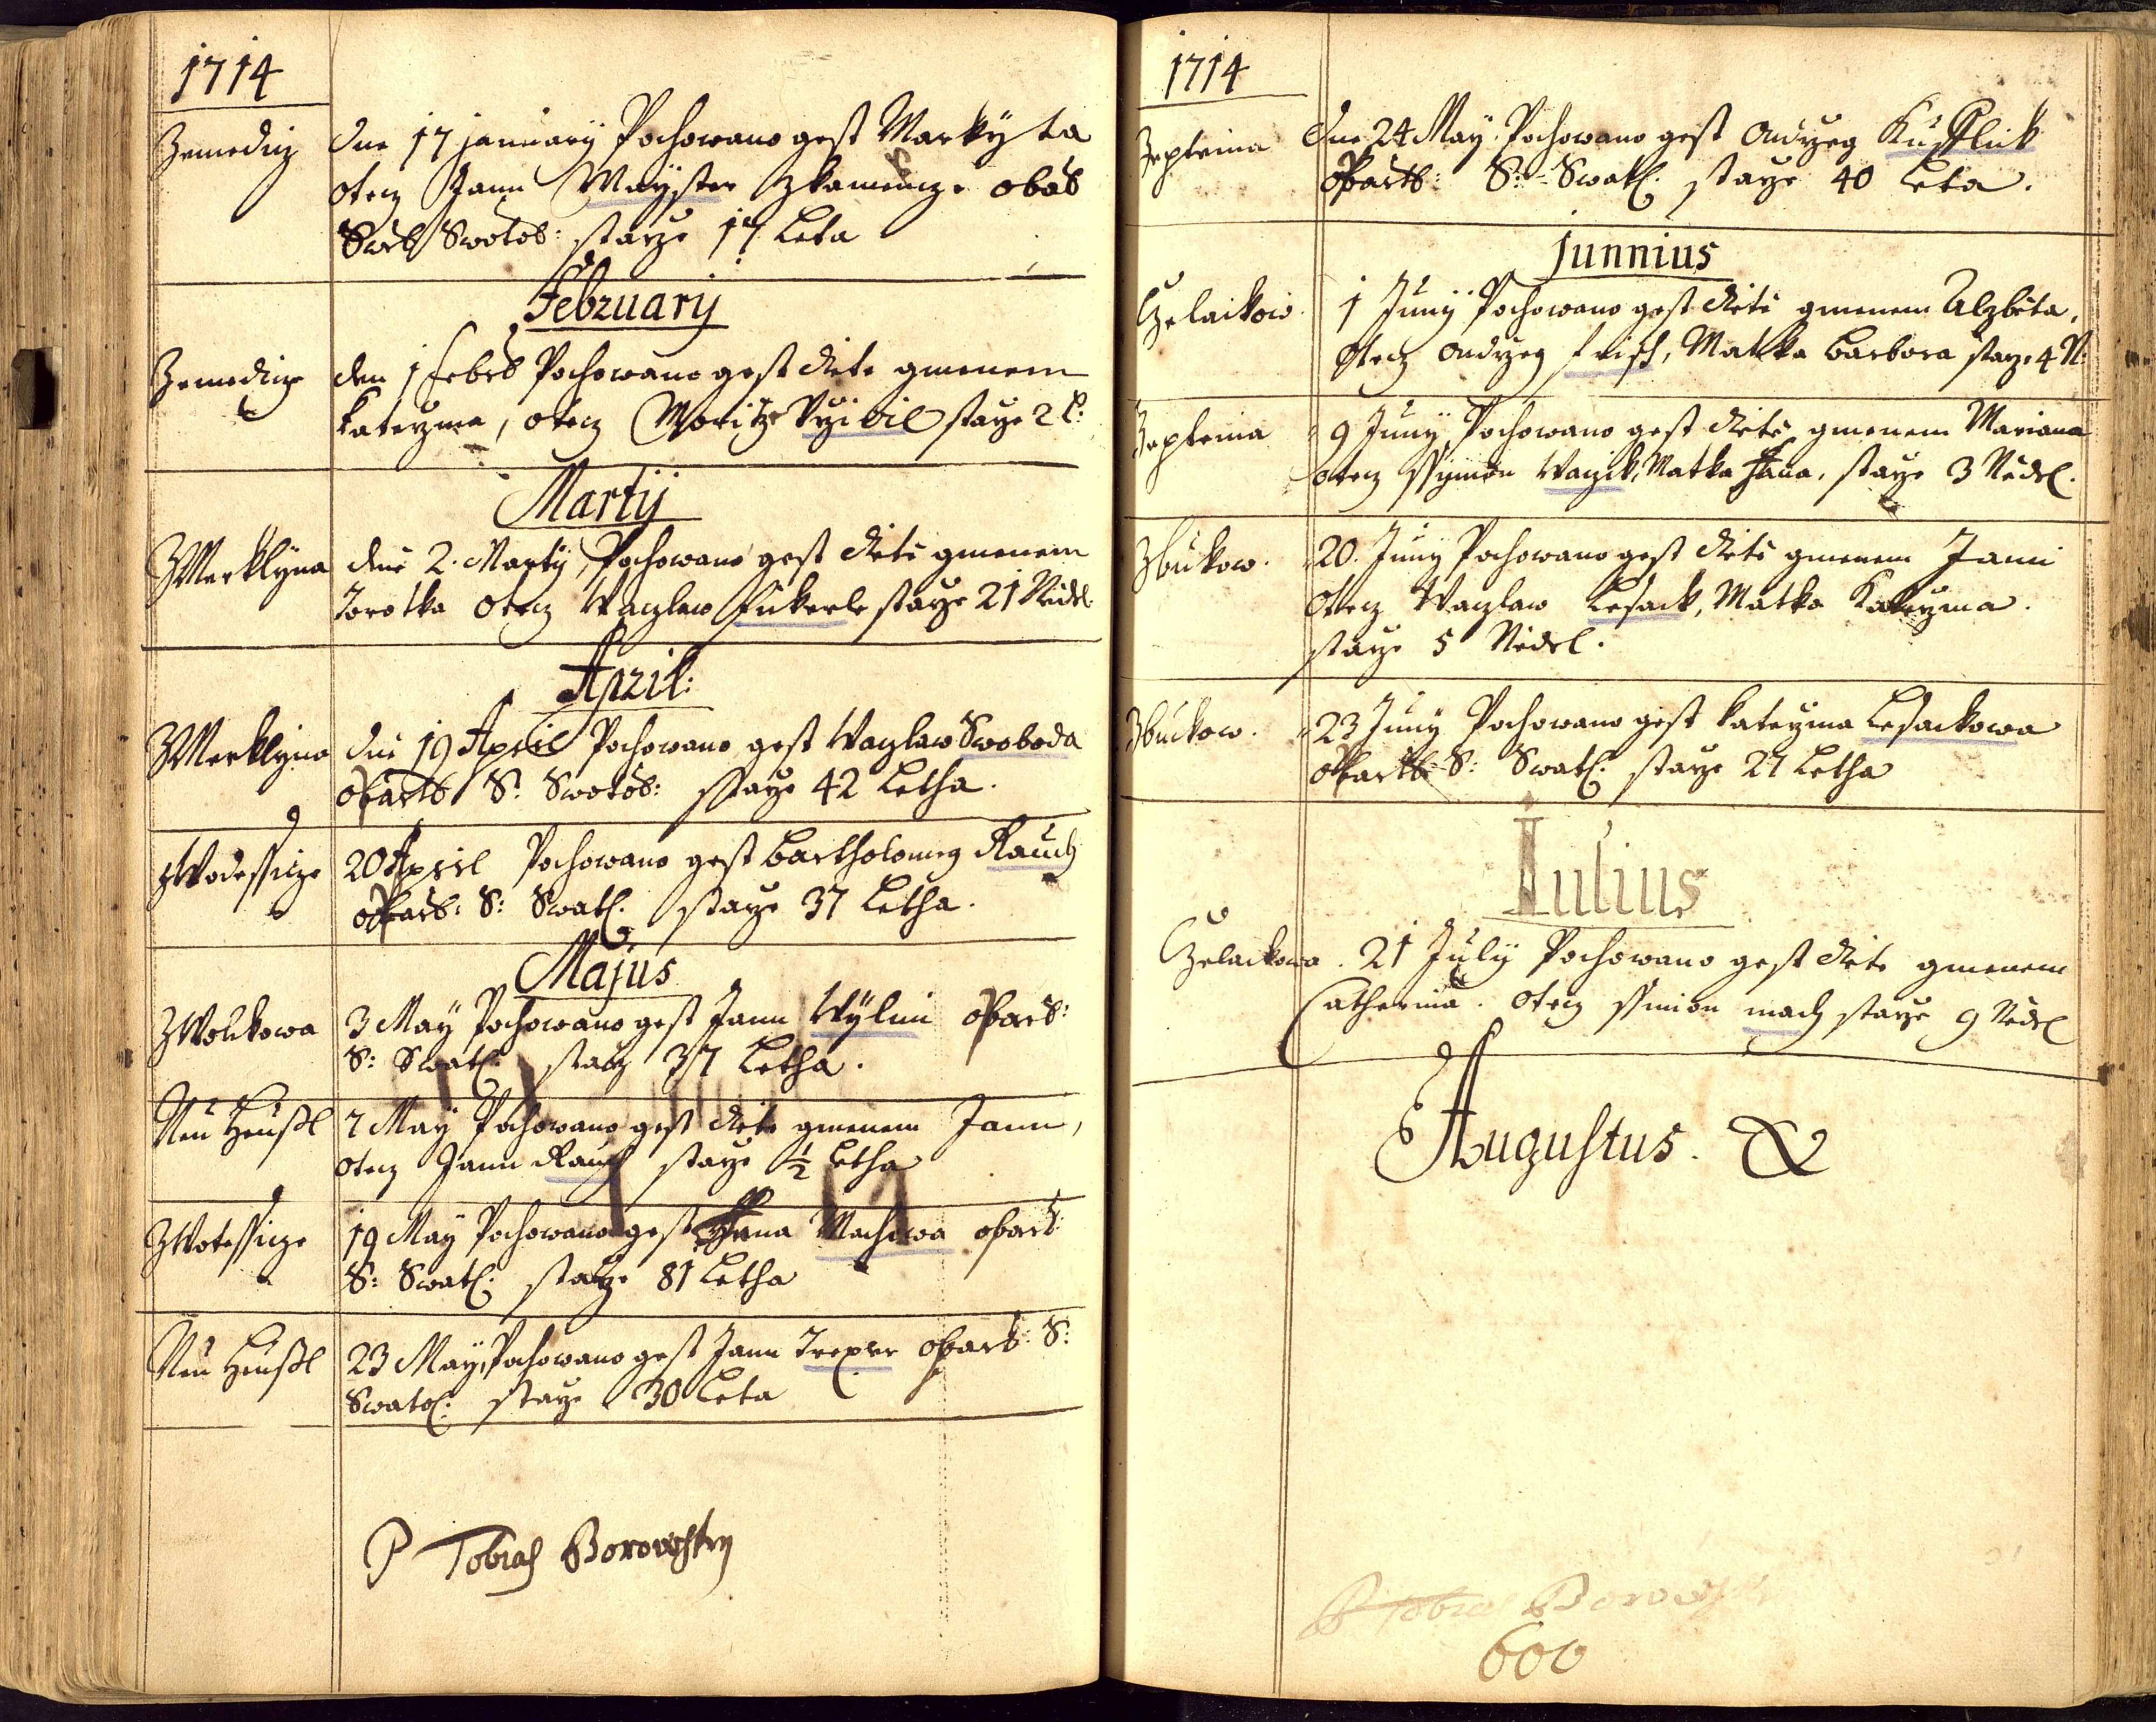 1714
Zemedicz
Dne 17 January Pochowano gest Markyta
otecz Jann Mayster zkamencze obdb
Swotob: starze 17 Leta
February
Zemedicz
den 1 Febrb Pochowano gest ditie gmenem
Katerzina, otecz Moritz Vyibil starze 2 l:
Martij
ZMerklyna
dne 2. Marty Pochowano gest dite gmenem
Dorotka otecz Waczlaw Fickerle starze 21 Nedel.
April:
ZMerklyna
dne 19 April Pochowano gest Waczlaw Swoboda
opartb S: Swotob: starze 42 Letha.
zWodessicze
20 April Pochowano gest Bartholomeg Rauch
opatrb: S: Swat. starze 37 Letha.
Majus
ZWolkowa
3 May Pochowano gest Jann Wylim opartb:
S: Swat. starz 37 Letha.
Neu Heußl
7 May Pochowano gest dite gmenem Jann,
otecz Jann Rauch starze ½ Letha
ZWotessicze
19 May Pochowano gest Anna Machowa opart:
S: Swat. starze 81 Letha
Neu Heußl
23 May Pochowano gest Jann Trexler opart: S:
Swato: starze 30 Leta
P Tobias Borowsky
1714
Zeptina
Dne 24 May Pochowano gest Ondrzeg Kupflick
opartb: S: Swat. starze 40 Leta.
Junnius
Czelaikow.
1 Juny Pochowano gest dite gmenem Alzbeta,
otecz Ondrzeg Frisch, Matka Barbora starze 4 N:
Zeptina
9 Juny Pochowano gest dite gmenem Mariana
otecz Ssymon Waczik, Matka Anna, starze 3 Nedel.
Zbukow.
20. Juny Pochowano gest dite gmenem Jann
otecz Waczlaw Lesack, Matka Katerzina.
starze 5 Nedel.
Zbuckow.
23 Juny Pochowano gest Katerzina Lesackowa
opartb: S: Swat. starze 27 Letha
Iulius
Czelackowa.
21 July Pochowano gest dite gmenem
Catherina. otecz Ssimon mach starze 9 Nedel
Augustus. &
P Tobias Borowsky
600